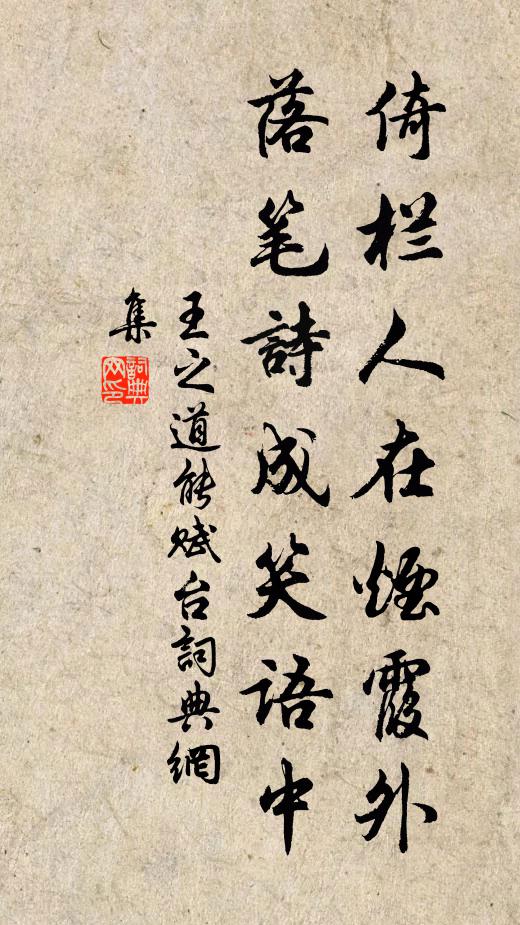 倚栏人在煙霞外
落笔詩成笑语中
王之道能赋台詞典網
集
詞典
网印